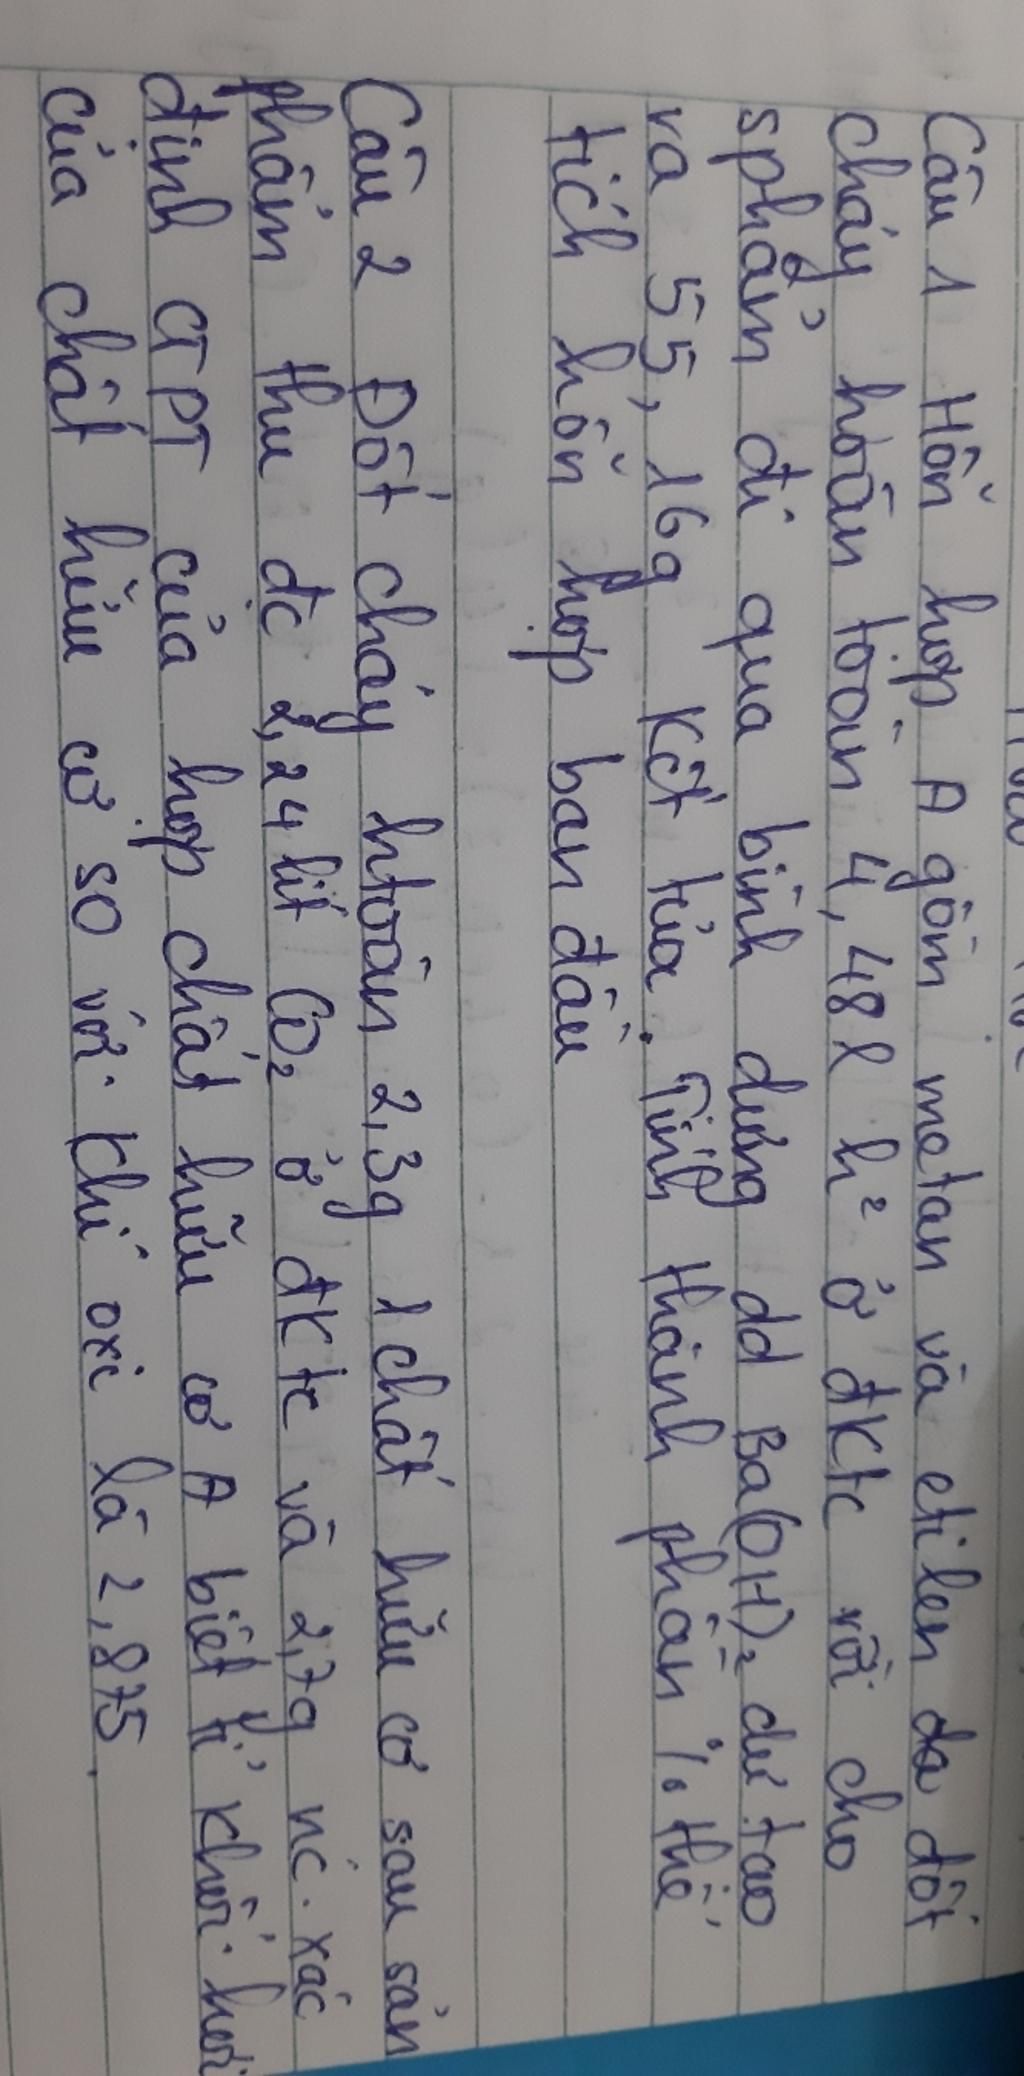 Câu 1 Hỗn hợp A gồm metan và etilen da đốt
cháy hoàn toàn 4,48 l h² ở đKtc rồi cho
sphẩm đi qua bình đựng dd Ba(OH)₂ dư tạo
ra 55,16g Kết tủa. Tính thành phần % thể
tích hỗn hợp ban đầu
Câu 2 Đốt cháy htoàn 2,3g 1 chất hữu cơ sau sản
phẩm thu đc 2,24 lít CO₂ ở đKtc và 2,7g nc. xác
định CTPT của hợp chất hữu cơ A biết tỉ khối hơi
của chất hữu cơ so với Khí oxi là 2,875.